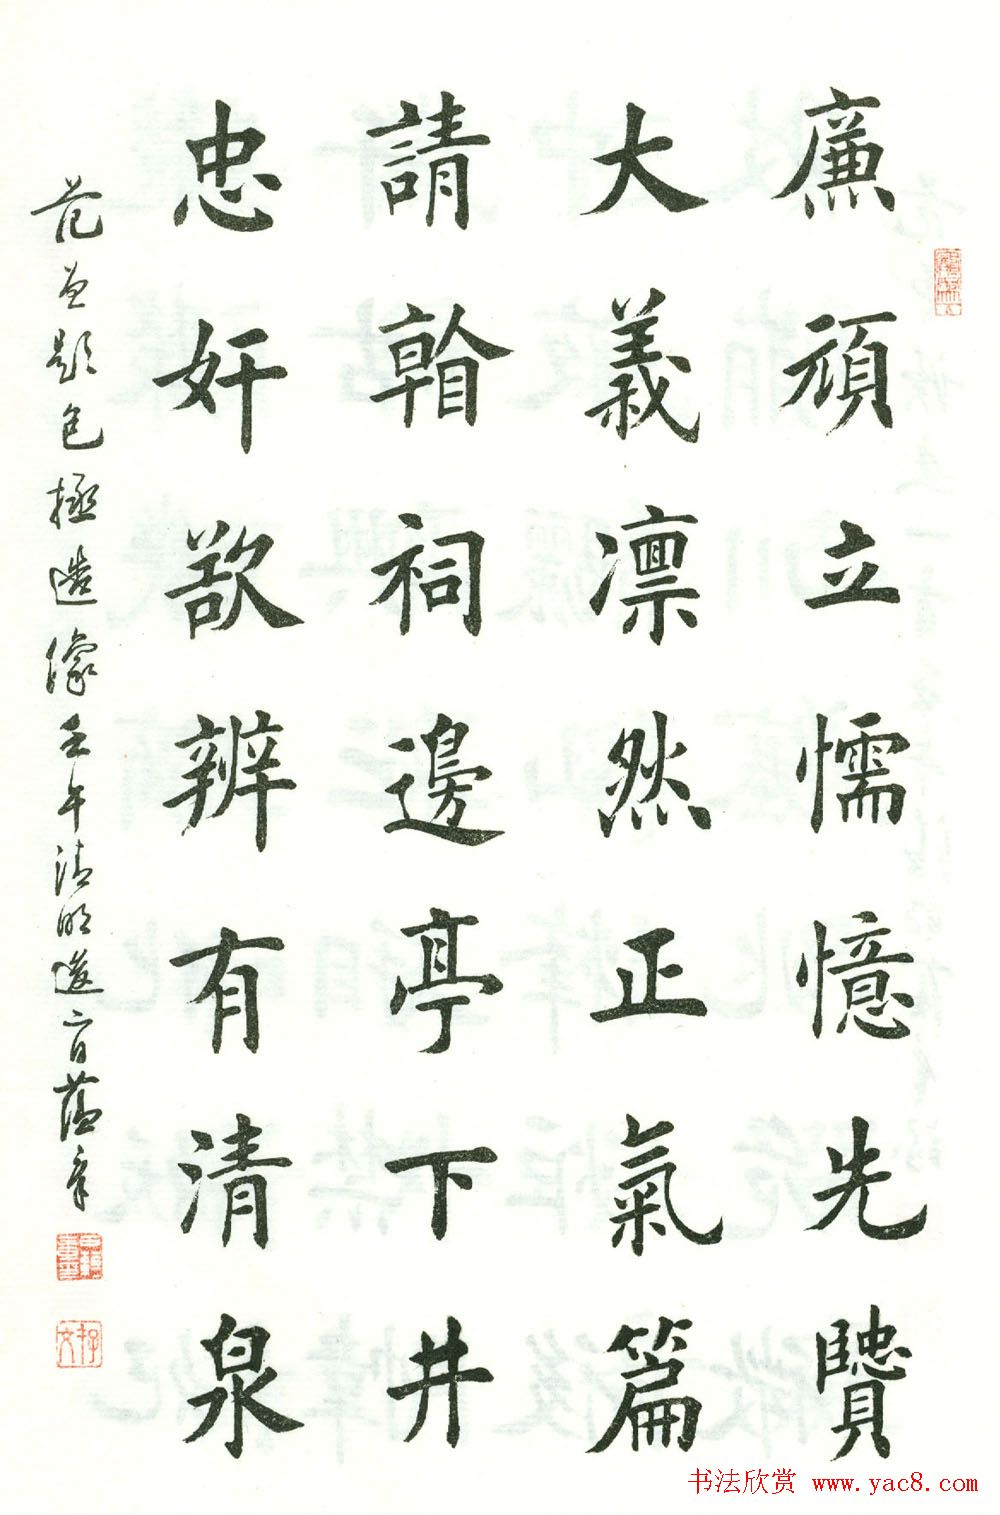 廉頑立懦憶先贒
大義凛然正氣篇
請翰祠邊亭下井
忠奸欲辨有清泉
范曾題包拯造像壬午清明後二日蕴章
书法欣赏 www.yac8.com